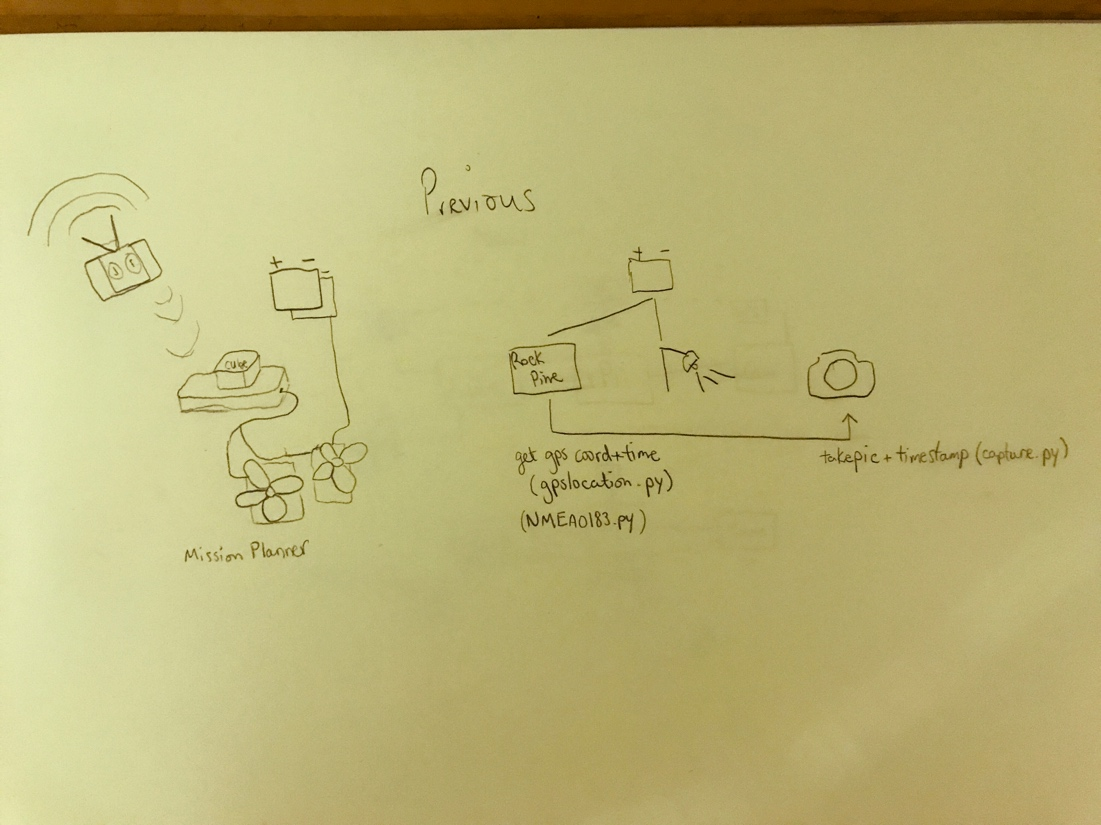 Previous
+ -
-
cube
Mission Planner
+ -
Rock
Pine
get gps coord+time
(gpslocation.py)
(NMEA0183.py)
takepic + timestamp (capture.py)